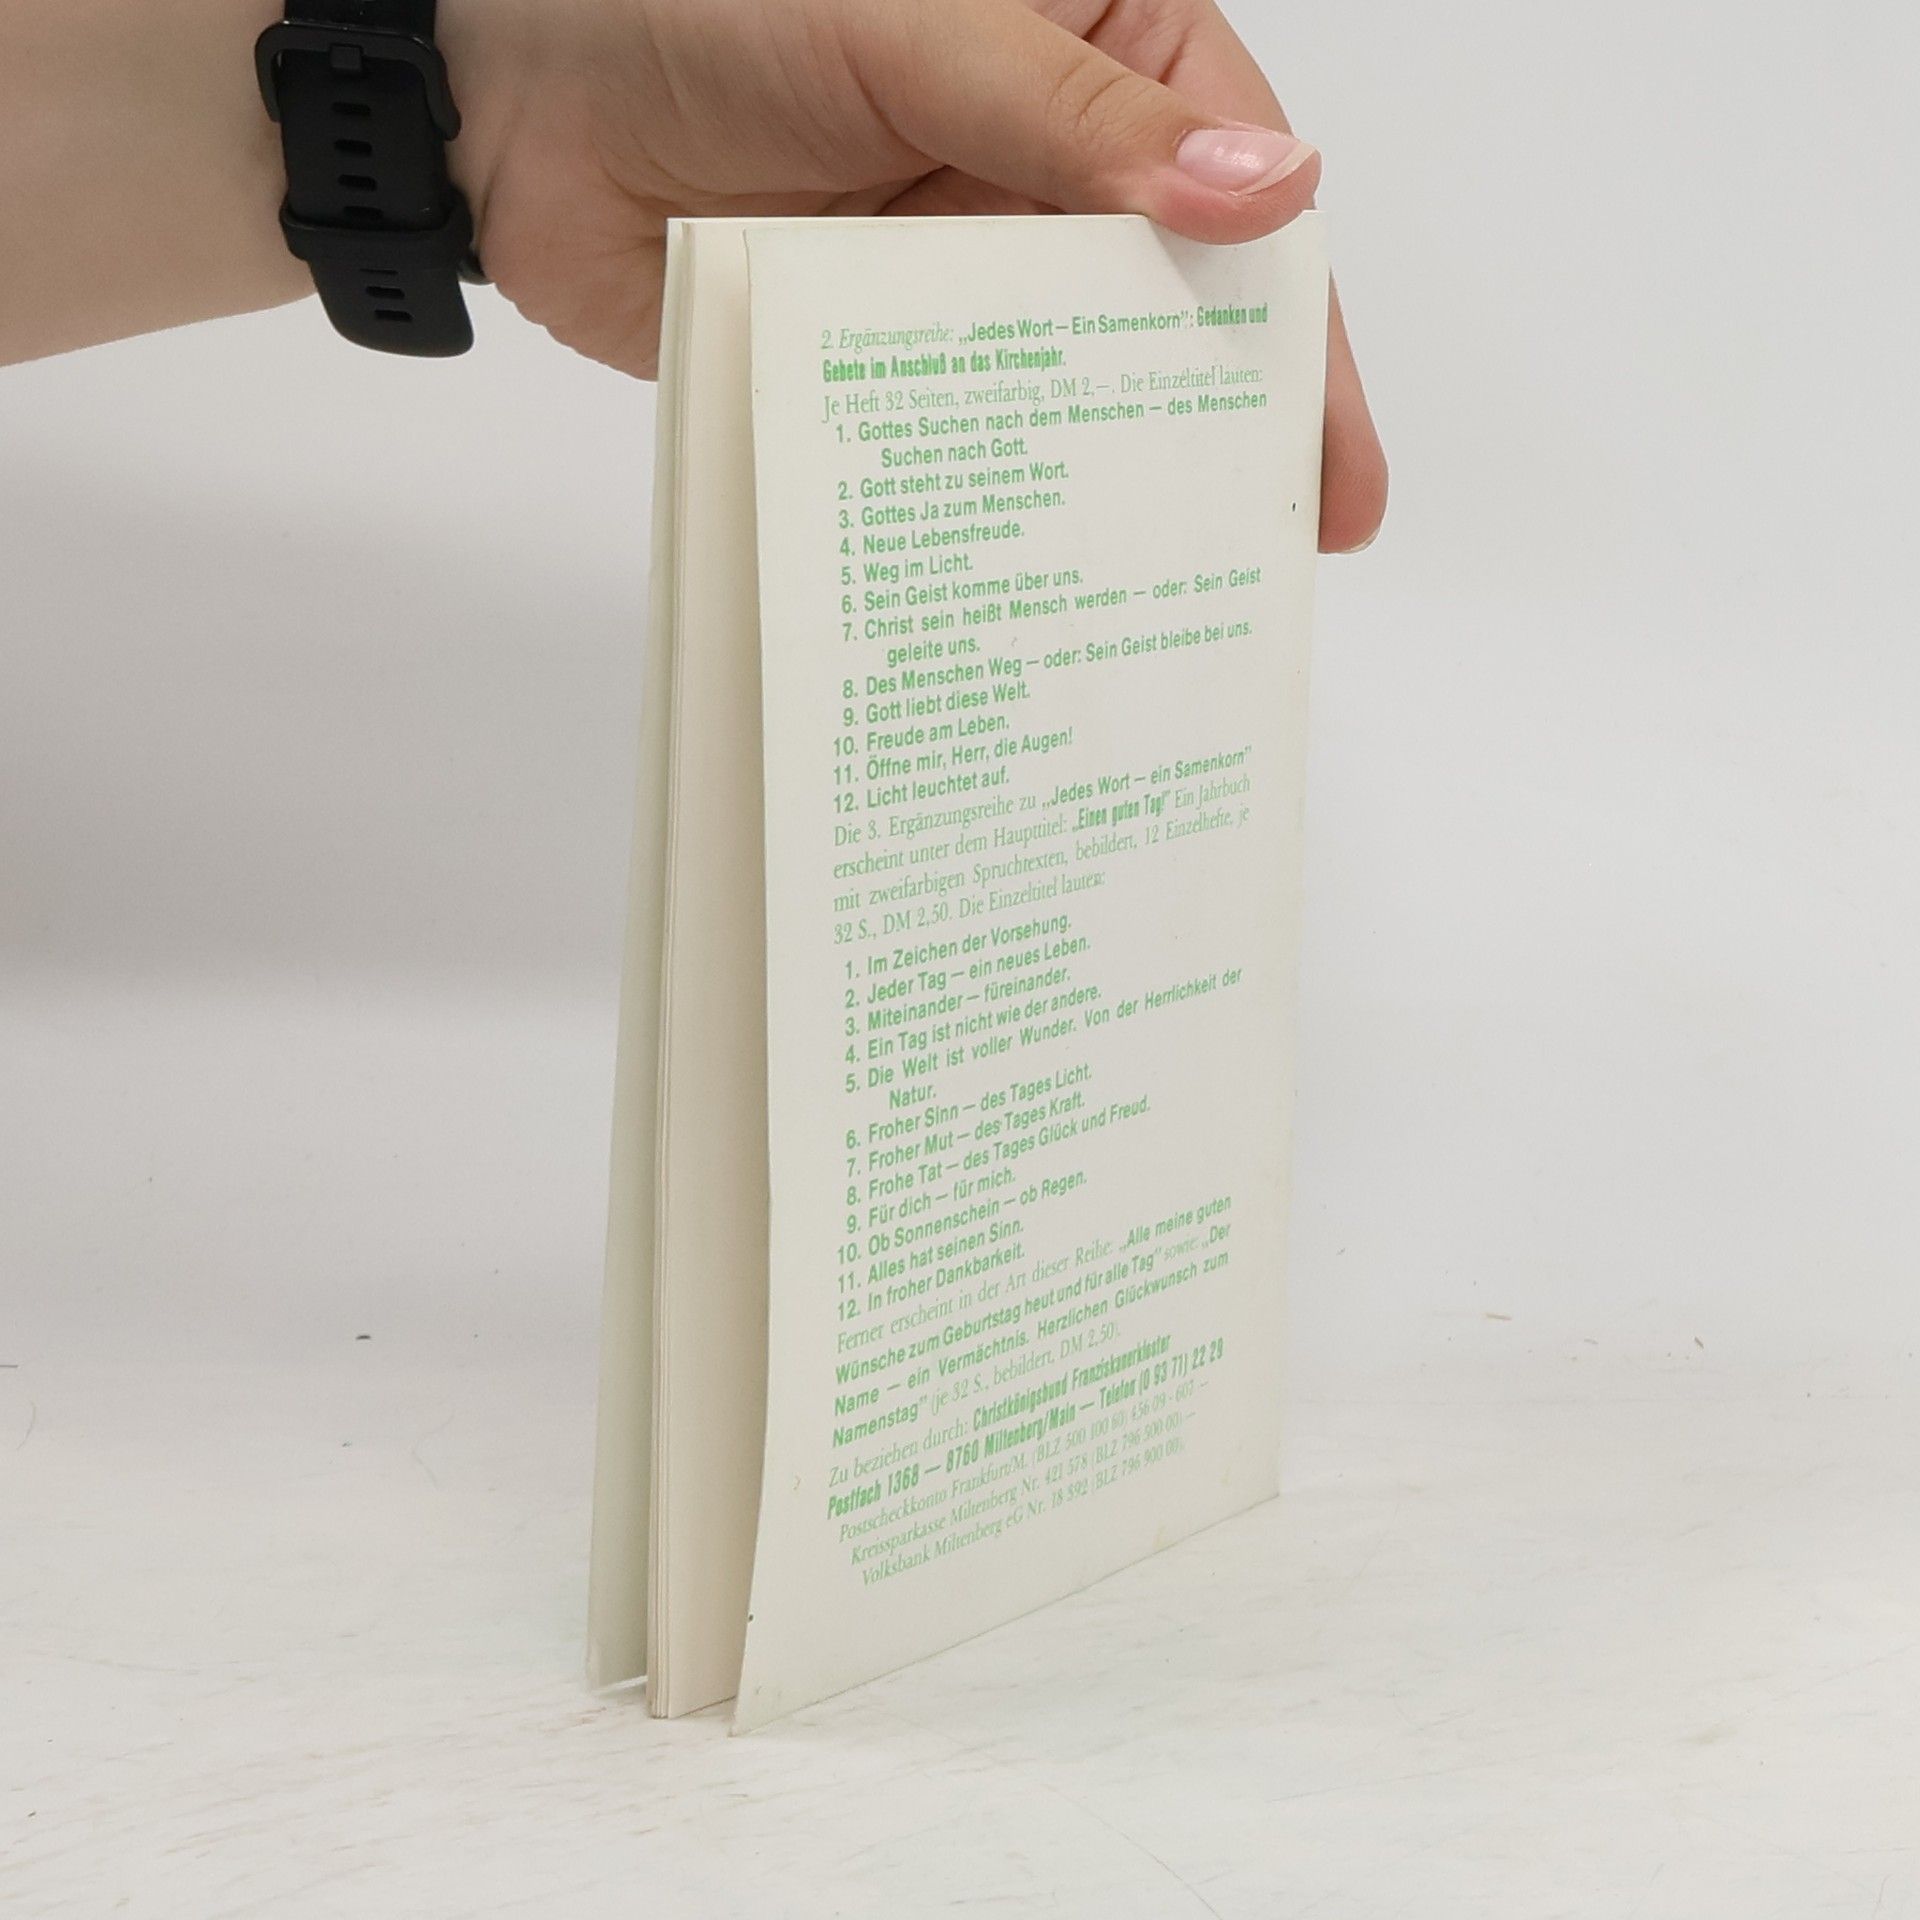 2. Ergänzungsreihe: „Jedes Wort — Ein Samenkorn”: Gedanken und
Gebete im Anschluß an das Kirchenjahr.
Je Heft 32 Seiten, zweifarbig, DM 2,—. Die Einzeltitel lauten:
1. Gottes Suchen nach dem Menschen — des Menschen
Suchen nach Gott.
2. Gott steht zu seinem Wort.
3. Gottes Ja zum Menschen.
4. Neue Lebensfreude.
5. Weg im Licht.
6. Sein Geist komme über uns.
7. Christ sein heißt Mensch werden — oder: Sein Geist
geleite uns.
8. Des Menschen Weg — oder: Sein Geist bleibe bei uns.
9. Gott liebt diese Welt.
10. Freude am Leben.
11. Öffne mir, Herr, die Augen!
12. Licht leuchtet auf.
Die 3. Ergänzungsreihe zu „Jedes Wort — ein Samenkorn”
erscheint unter dem Haupttitel: „Einen guten Tag!” Ein Jahrbuch
mit zweifarbigen Spruchtexten, bebildert, 12 Einzelhefte, je
32 S., DM 2,50. Die Einzeltitel lauten:
1. Im Zeichen der Vorsehung.
2. Jeder Tag — ein neues Leben.
3. Miteinander — füreinander.
4. Ein Tag ist nicht wie der andere.
5. Die Welt ist voller Wunder. Von der Herrlichkeit der
Natur.
6. Froher Sinn — des Tages Licht.
7. Froher Mut — des Tages Kraft.
8. Frohe Tat — des Tages Glück und Freud.
9. Für dich — für mich.
10. Ob Sonnenschein — ob Regen.
11. Alles hat seinen Sinn.
12. In froher Dankbarkeit.
Ferner erscheint in der Art dieser Reihe: „Alle meine guten
Wünsche zum Geburtstag heut und für alle Tag” sowie: „Der
Name — ein Vermächtnis. Herzlichen Glückwunsch zum
Namenstag” (je 32 S., bebildert, DM 2,50).
Zu beziehen durch: Christkönigsbund Franziskanerkloster
Postfach 1368 — 8760 Miltenberg/Main — Telefon (0 93 71) 22 29
Postscheckkonto Frankfurt/M. (BLZ 500 100 60) 456 09 - 607 —
Kreissparkasse Miltenberg Nr. 421 578 (BLZ 796 500 00) —
Volksbank Miltenberg eG Nr. 18 392 (BLZ 796 900 00).